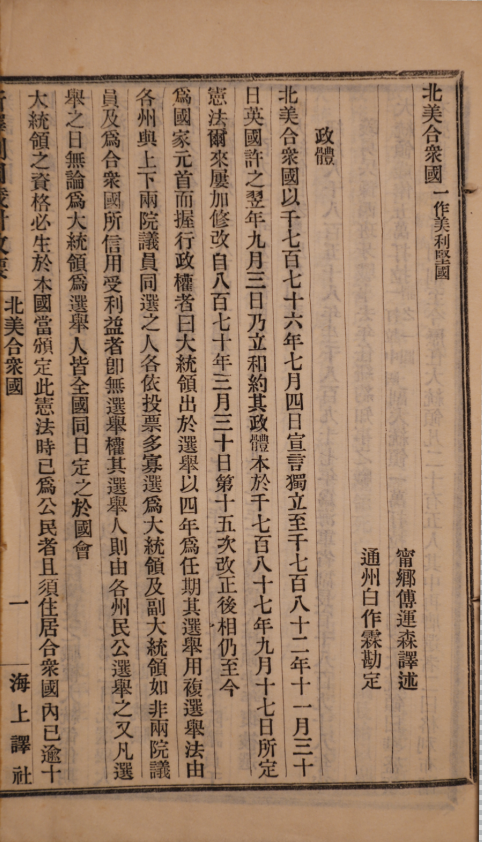 北美合衆國一作美利堅國
甯鄉傅運森譯述
通州白作霖勘定
政體
北美合衆國以千七百七十六年七月四日宣言獨立至千七百八十二年十一月三十
日英國許之翌年九月三日乃立和約其政體本於千七百八十七年九月十七日所定
憲法爾來屢加修改自八百七十年三月三十日第十五次改正後相仍至今
爲國家元首而握行政權者曰大統領出於選舉以四年爲任期其選舉用複選舉法由
各州與上下兩院議員同選之人各依投票多寡選爲大統領及副大統領如非兩院議
員及爲合衆國所信用受利益者卽無選舉權其選舉人則由各州民公選舉之又凡選
舉之日無論爲大統領爲選舉人皆全國同日定之於國會
大統領之資格必生於本國當頒定此憲法時已爲公民者且須住居合衆國內已逾十
北美合衆國
一
海上譯社